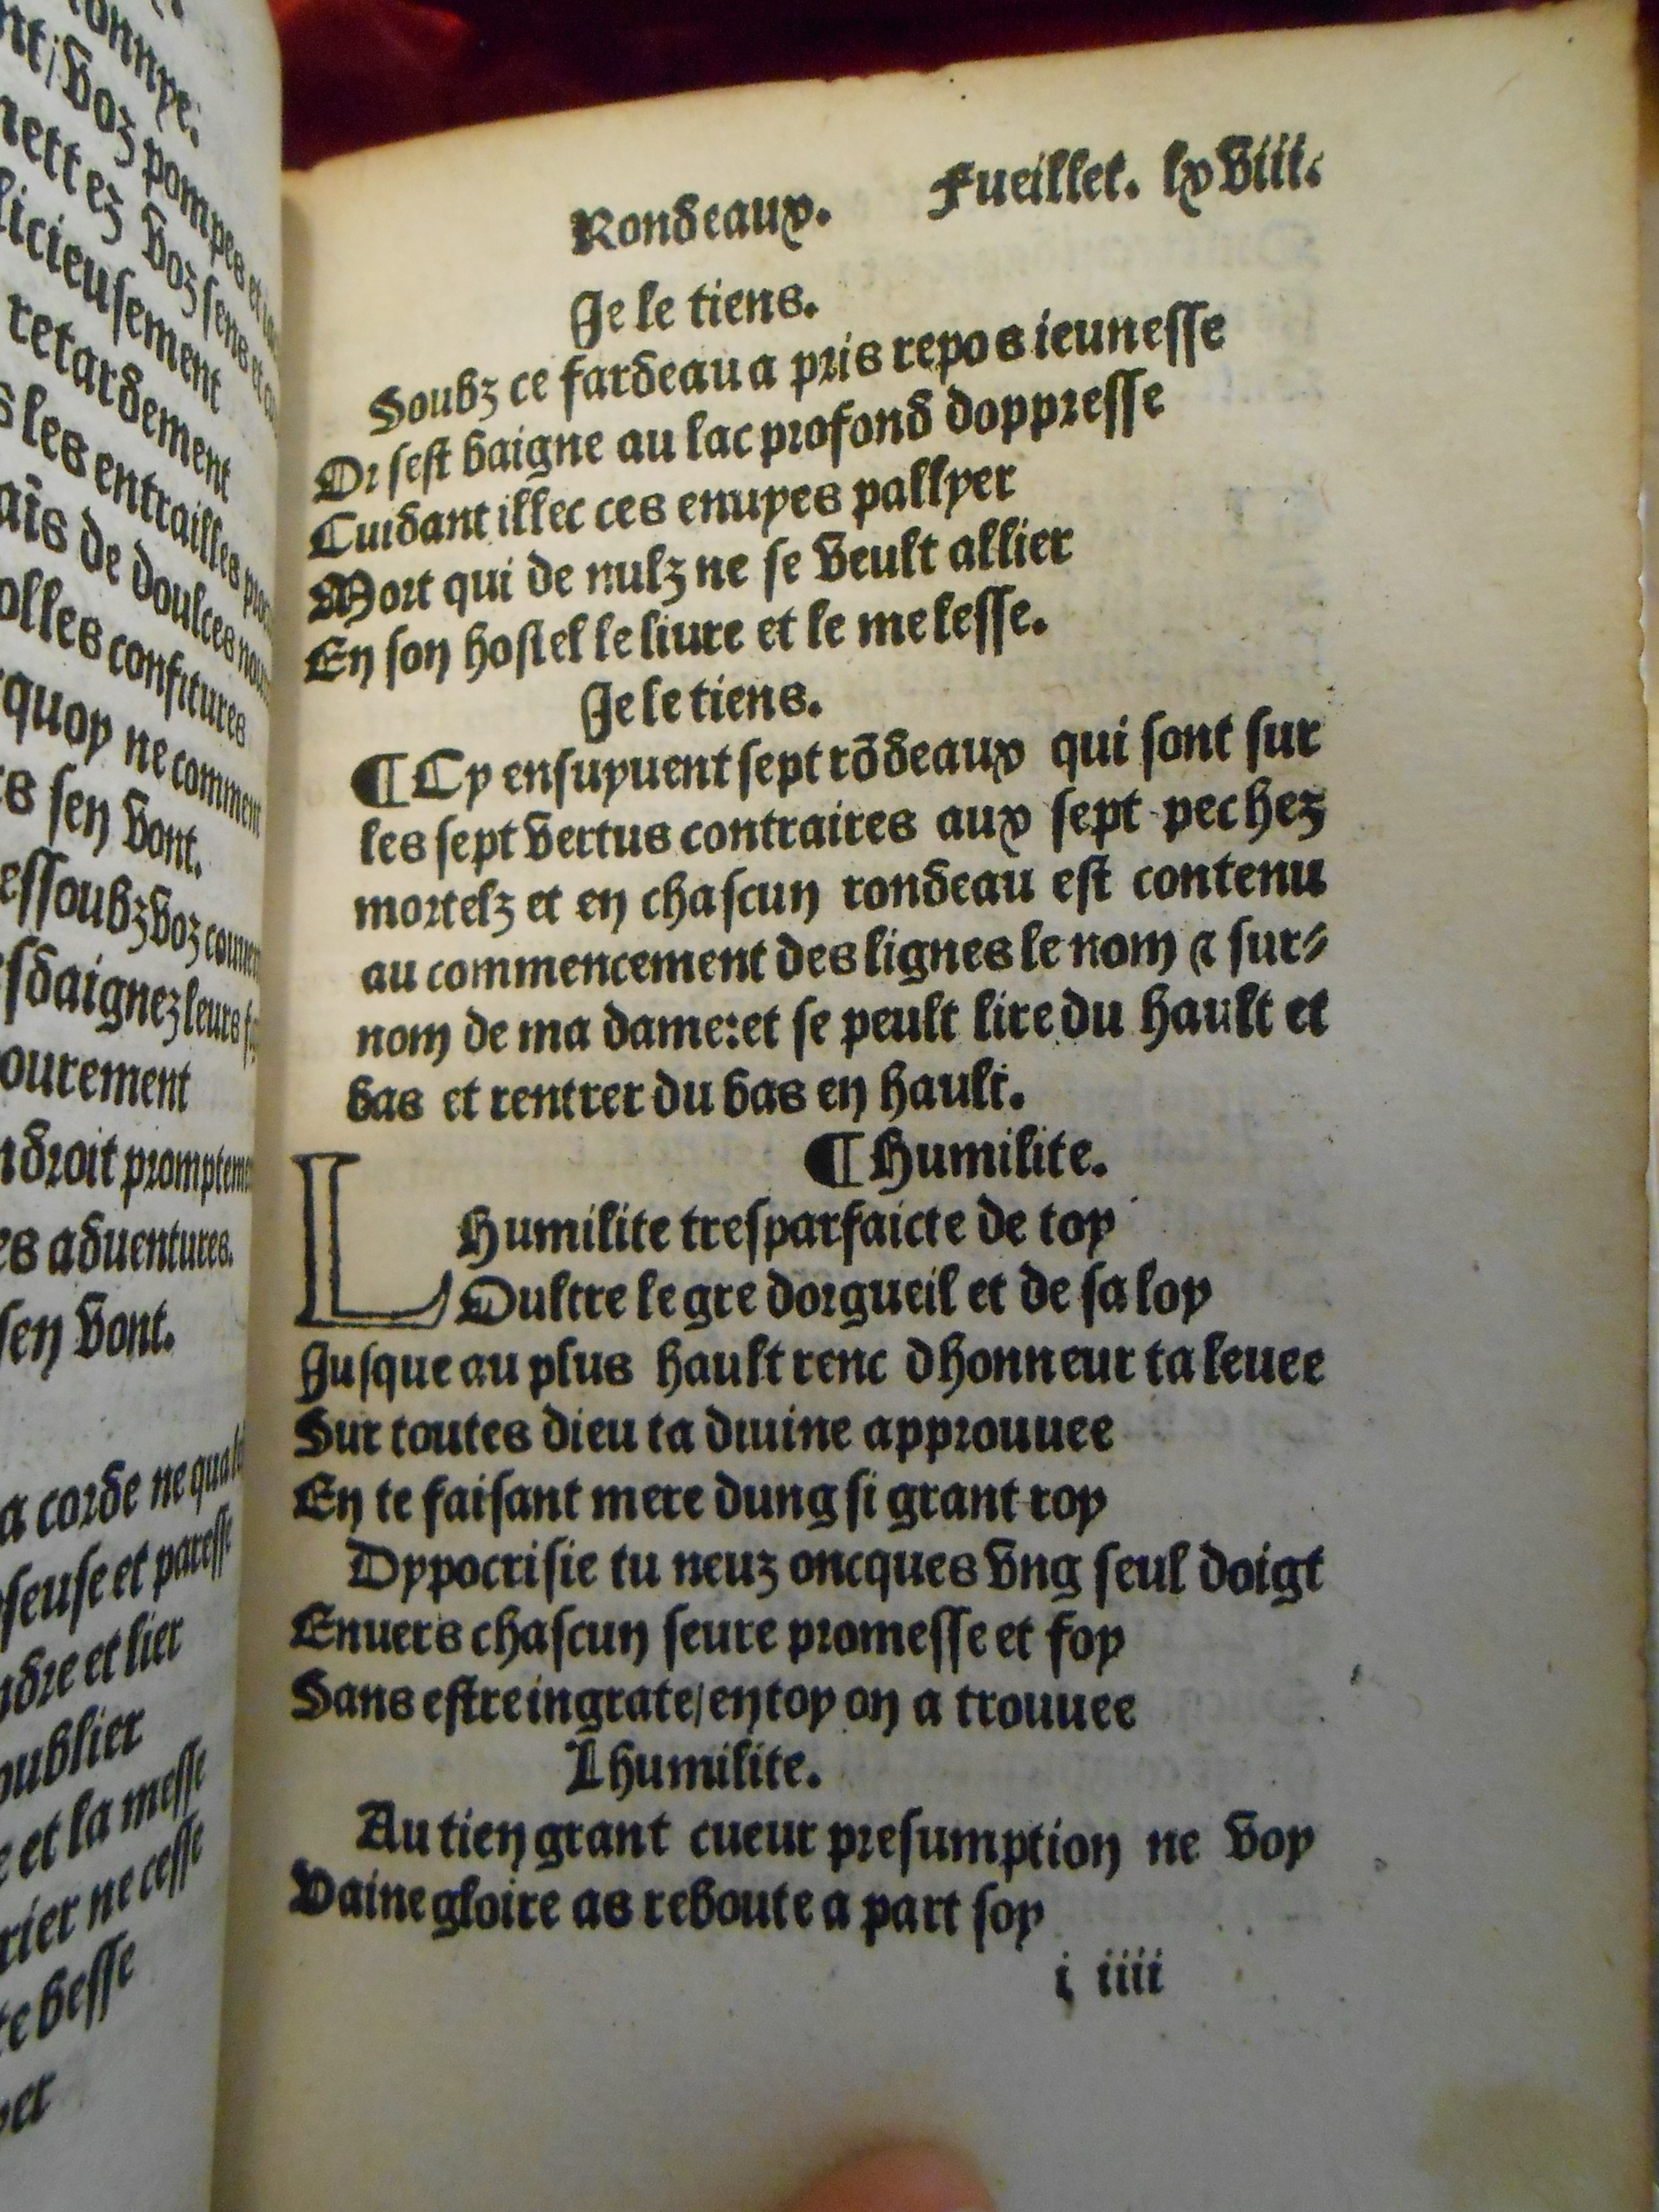 onnye.
nt/ voz pompes et
mettez voz sens et
licieusement
retardement
s les entrailles
ais de doulces
olles confitures
quoy ne comment
s sen vont.
essoubz voz
sdaignez leurs
ourement
ndroit
es aduentures.
sen vont.
a corde ne
seuse et paresse
ndre et lier
oublier
e et la messe
rier ne cesse
te besse
Rondeaux. Fueillet. lxviii.
Je le tiens.
Soubz ce fardeau a pris repos ieunesse
Or sest baigne au lac profond doppresse
Cuidant illec ces enuyes pallyer
Mort qui de nulz ne se veult allier
En son hostel le liure et le me lesse.
Je le tiens.
¶ Cy ensuyuent sept rōdeaux qui sont sur
les sept vertus contraires aux sept pechez
mortelz et en chascun rondeau est contenu
au commencement des lignes le nom ⁊ sur⸗
nom de ma dame: et se peult lire du hault et
bas et rentrer du bas en hault.
¶ Humilite.
L Humilite tresparfaicte de toy
Oultre le gre dorgueil et de sa loy
Jusque au plus hault renc dhonneur ta leuee
Sur toutes dieu ta diuine approuuee
En te faisant mere dung si grant roy
Dyppocrisie tu neuz oncques vng seul doigt
Enuers chascun seure promesse et foy
Sans estre ingrate/ en toy on a trouuee
Lhumilite.
Au tien grant cueur presumption ne voy
Vaine gloire as reboute a part soy
i iiii